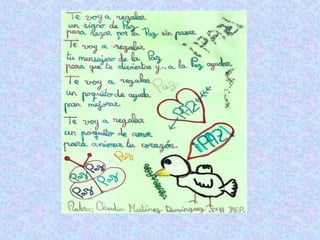 Te voy a regalar
un signo de Paz
para rezar por la Paz sin pasar.
¡PAZ!
Te voy a regalar
tu mensajero de la Paz
para que te diviertas y.. a la Paz ayudar
Te voy a regalar
Paz
un poquito de ayuda
para mejorar.
PAZ
Te voy a regalar
un poquito de amor
para animar tu corazón.
¡PAZ!
Paz
Paz Paz
Paz
Paz
Autora: Claudia Martínez Domínguez